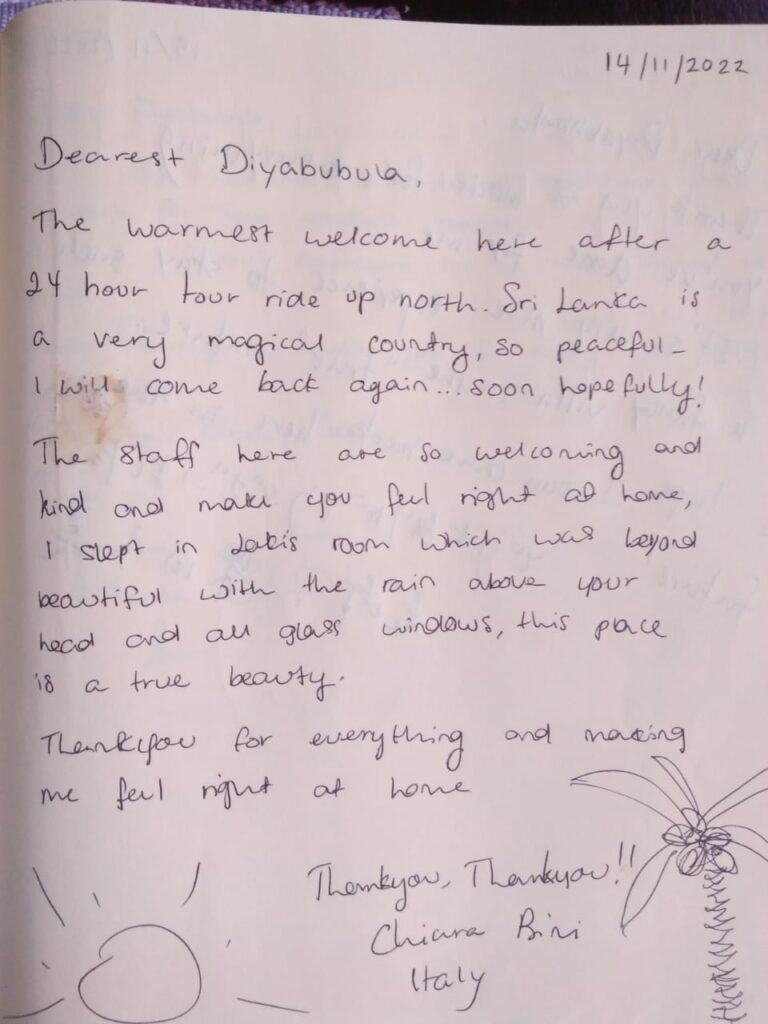 14/11/2022
Dearest Diyabubula,
The warmest welcome here after a
24 hour tour ride up north. Sri Lanka is
a very magical country, so peaceful -
I will come back again... soon hopefully!
The staff here are so welcoming and
kind and make you feel right at home,
I slept in Laki's room which was beyond
beautiful with the rain above your
head and all glass windows, this place
is a true beauty.
Thankyou for everything and making
me feel right at home
Thankyou, Thankyou!!
Chiara Bini
Italy